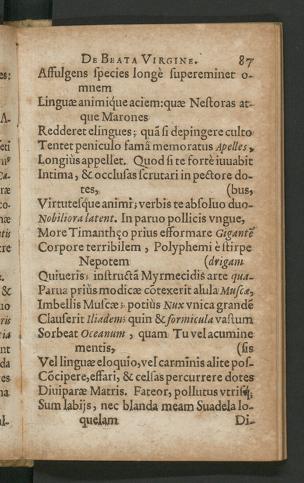 DE BEATA VIRGINE. 87
Affulgens species longè supereminet o-
mnem
Linguæ animique aciem: quæ Nestoras at-
que Marones
Redderet elingues; quã si depingere culto
Tentet peniculo famâ memoratus Apelles,
Longiùs appellet. Quod si te fortè iuuabit
Intima, & occlusas scrutari in pectore do-
tes, (bus,
Virtutesque animi; verbis te absoluo duo-
Nobiliora latent. In paruo pollicis vngue,
More Timanthço prius efformare Gigantẽ
Corpore terribilem, Polyphemi è stirpe
Nepotem (drigam
Quiueris; instructã Myrmecidis arte qua-
Parua priùs modicæ cõtexerit alula Muscæ,
Imbellis Muscæ; potiùs Nux vnica grandẽ
Clauserit Iliadem; quin & formicula vastum
Sorbeat Oceanum, quam Tu vel acumine
mentis, (sis
Vel linguæ eloquio, vel carminis alite pos-
Cõcipere, effari, & celsas percurrere dotes
Diuiparæ Matris. Fateor, pollutus vtrisq;
Sum labijs, nec blanda meam Suadela lo-
quelam Di-